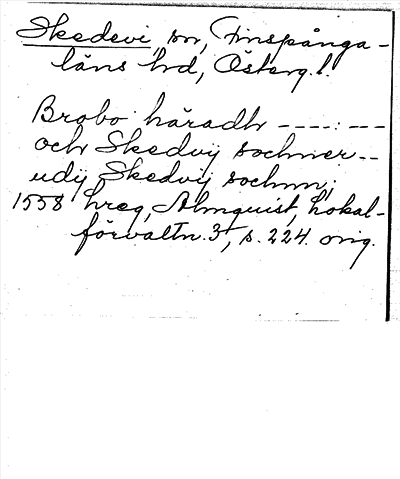 Skedevi sn, Finspånga-
läns hd, Österg. l.
Brobo häradh ----:---
och Skedvij sochner--
udij Skedvij sochnn;
1558 hreg, Almquist, Lokal-
förvaltn. 3, s. 224. orig.